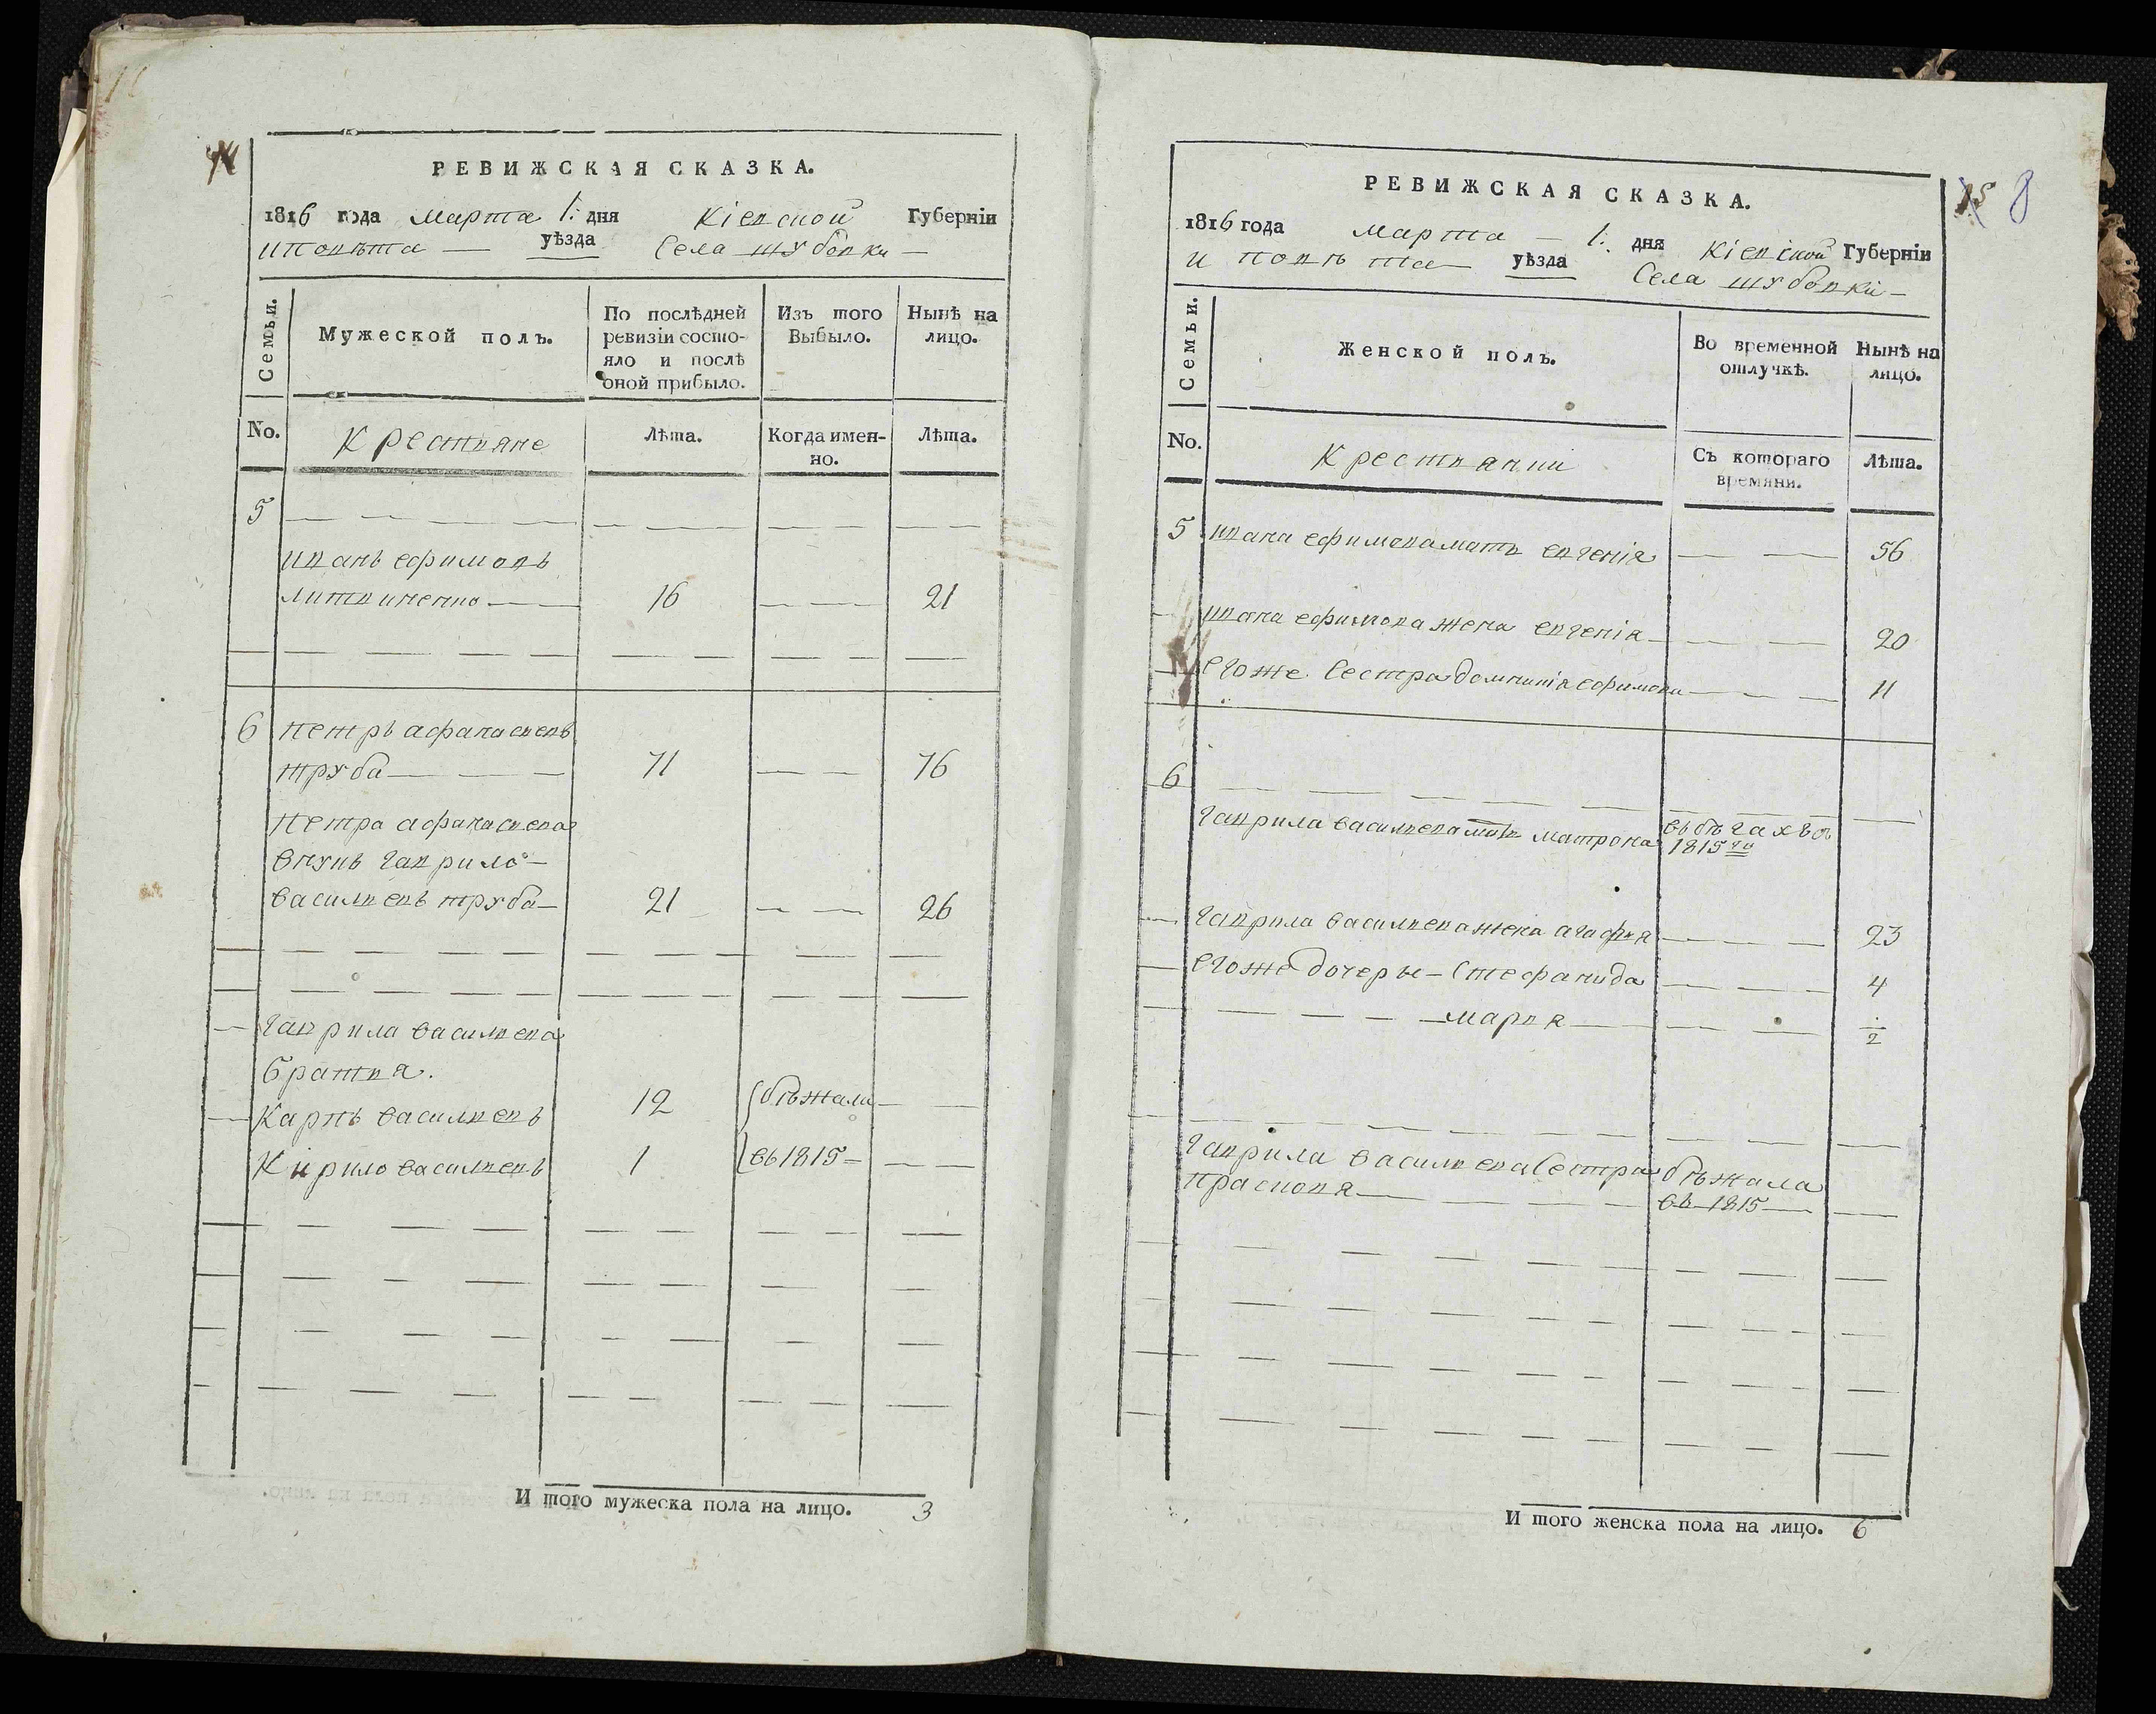 РЕВИЖСКАЯ СКАЗКА.
1816 года марта 1: дня Кіевской Губерніи
и повѣта уѣзда Села шубовки
Семьи.
Мужеской полъ.
По послѣдней ревизіи состояло и послѣ оной прибыло.
Изъ того Выбыло.
Нынѣ на лицо.
No.
Крестьяне
Лѣта.
Когда именно.
Лѣта.
5
иванъ ефимовъ
литвиненко 16 21
6 петръ афанасьевъ
труба 71 76
петра афанасьева
внукъ гаврило
васильевъ труба 21 26
гаврила васильева
братья.
Карпъ васильевъ 12 бѣжали
Кирило васильевъ 1 въ 1815
И того мужеска пола на лицо. 3
РЕВИЖСКАЯ СКАЗКА.
8
1816 года марта 1: дня Кіевской Губерніи
и повѣта уѣзда Села шубовки
Семьи.
Женской полъ.
Во временной отлучкѣ.
Нынѣ на лицо.
No.
Крестьянки
Съ котораго времяни.
Лѣта.
5 ивана ефимова мать евгенія 56
ивана ефимова жена евгенія 20
егоже Сестра домникія ефимова 11
6
гаврила васильева мать матрона въ бѣгахъ съ
1815 го
гаврила васильева жена агафья 23
егоже дочеры Стефанида 4
марья 1/2
гаврила васильева Сестра бѣжала
прасковя въ 1815
И того женска пола на лицо. 6